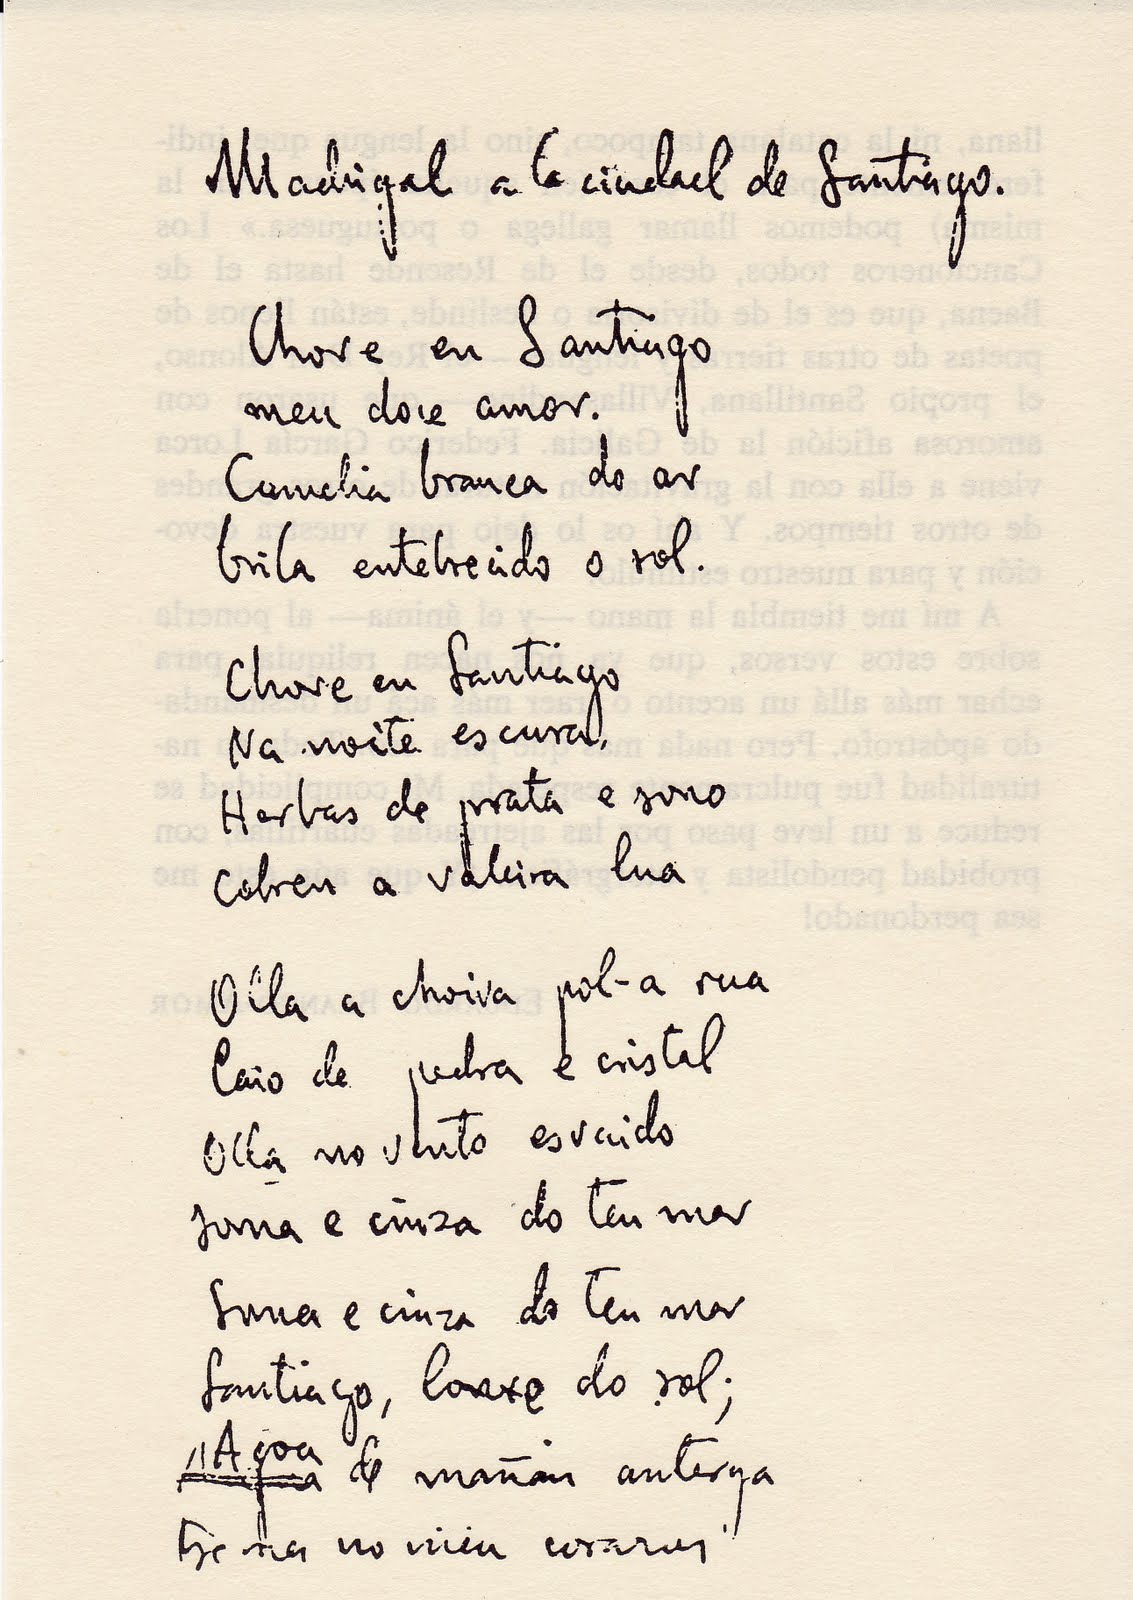 Madrigal a la ciudad de Santiago.
Chove en Santiago
meu doce amor.
Camelia branca do ar
brila entebrecido o sol.
Chove en Santiago
Na noite escura.
Herbas de prata e sono
cobren a valeira lua
Olla a choiva pol-a rua
Laio de pedra e cristal
Olla no vento esvaido
soma e cinza do teu mar
Soma e cinza do teu mar
Santiago, lonxe do sol;
Agoa
Agua de mañán anterga
trema no meu corazon